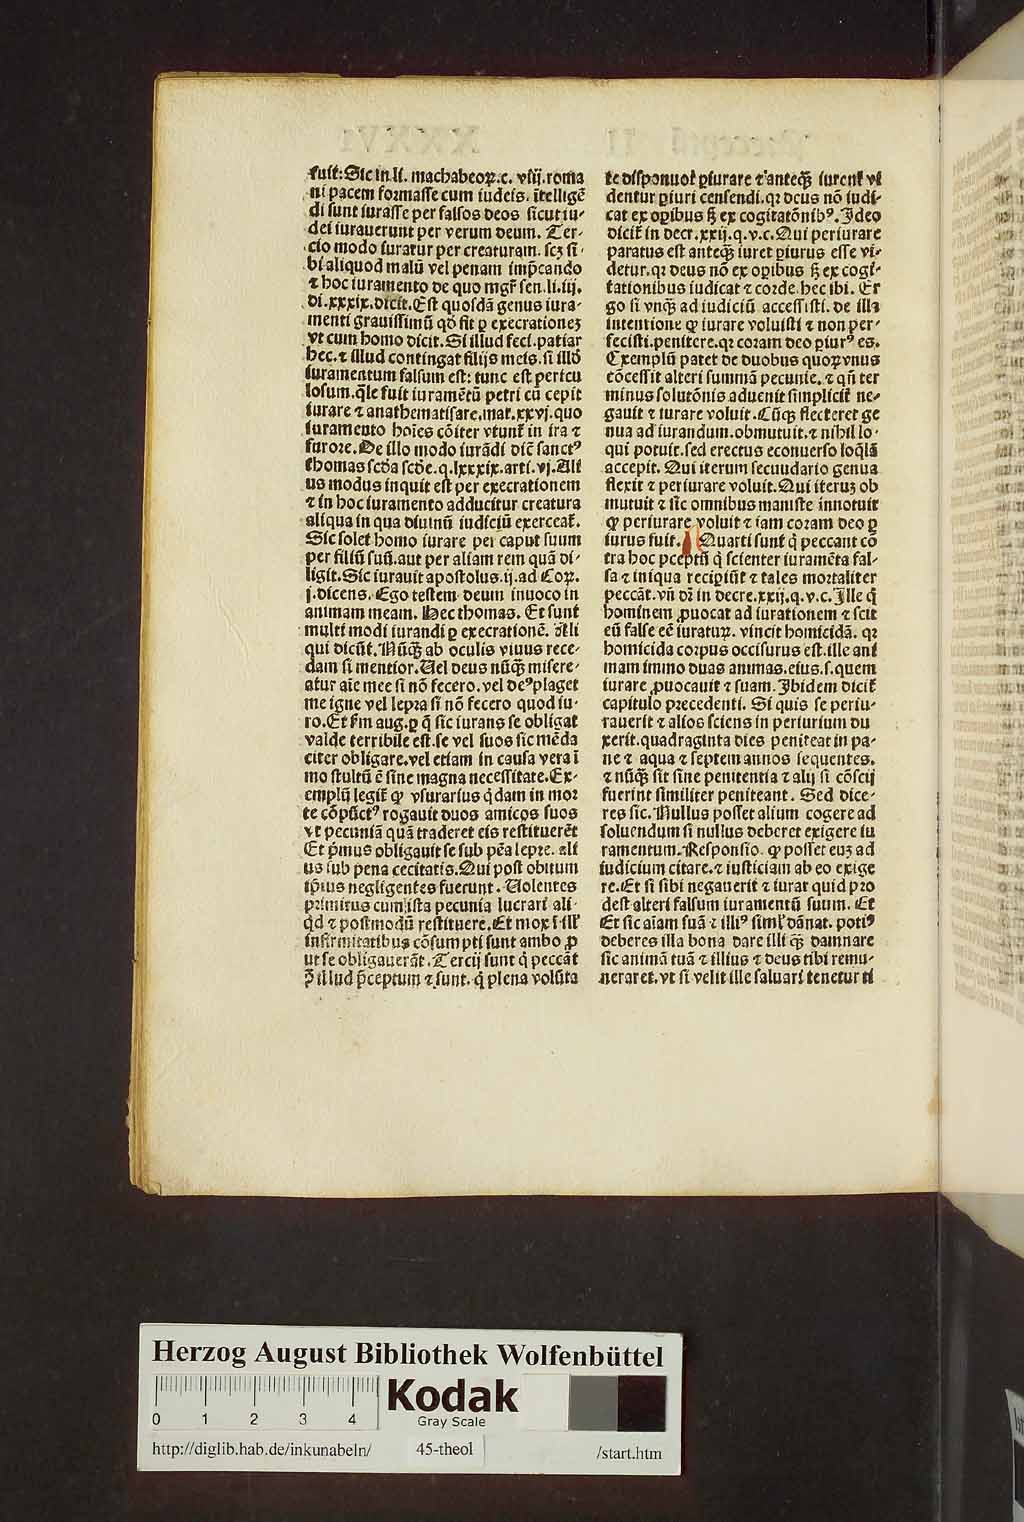 fuit: Sic in li. machabeoꝝ. c. viij. roma
ni pacem formasse cum iudeis. ītelligē
di sunt iurasse per falsos deos sicut iu-
dei iurauerunt per verum deum. Ter-
cio modo iuratur per creaturam. scꝫ si
bi aliquod malū vel penam imp̄cando
⁊ hoc iuramento de quo mgr̄ sen. li. iij.
di. xxxix. dicit. Est quoſdā genus iura-
menti grauissimū qd̄ fit ꝑ execrationeꝫ
vt cum homo dicit. Si illud feci. patiar
hec. ⁊ illud contingat filijs meis. si illd̄
iuramentum falsum est: tunc est pericu
losum. q̄le fuit iuramētū petri cū cepit
iurare ⁊ anathematisare. mat. xxvj. quo
iuramento hoīes cōiter vtunt᷑ in ira ⁊
furore. De illo modo iurādi dic̄ sanctꝰ
thomas scd̄a scd̄e. q. lxxxix. arti. vj. Ali
us modus inquit est per execrationem
⁊ in hoc iuramento adducitur creatura
aliqua in qua diuinū iudiciū exerceat᷑.
Sic solet homo iurare per caput suum
per filiū suū. aut per aliam rem quā di-
ligit. Sic iurauit apostolus. ij. ad Coꝝ.
j. dicens. Ego testem deum inuoco in
animam meam. Hec thomas. Et sunt
multi modi iurandi ꝑ execrationē. Ali
qui dicūt. Nūqꝫ ab oculis viuus rece-
dam si mentior. Uel deus nūqꝫ misere-
atur aīe mee si nō fecero. vel deꝰ plaget
me igne vel lepra si nō fecero quod iu-
ro. Et s̄m aug. ꝑ q̄ sic iurans se obligat
valde terribile est. se vel suos sic mēda
citer obligare. vel etiam in causa vera ī
mo stultū ē sine magna necessitate. Ex-
emplū legit᷑ ꝙ vsurarius q̇dam in mor
te cōpūctꝰ rogauit duos amicos suos
vt pecuniā quā traderet eis restituerēt
Et p̄mus obligauit se sub pēa lepre. ali
us sub pena cecitatis. Qui post obitum
ip̄ius negligentes fuerunt. Uolentes
primitus cum ista pecunia lucrari ali-
q̇d ⁊ postmodū restituere. Et mox ī ill'
infirmitatibus cōsumpti sunt ambo ꝓ
ut se obligauerāt. Tercij sunt q̇ peccāt
ↄ̄ illud p̄ceptum ⁊ sunt. q̇ plena volūta
te disponūt ꝑiurare ⁊ anteqꝫ iurent vi
dentur ꝑiuri censendi. qꝛ deus nō iudi-
cat ex oꝑibus sꝫ ex cogitatōnibꝰ. Ideo
dicit᷑ in decr. xxij. q. v. c. Qui periurare
paratus est anteqꝫ iuret ꝑiurus esse vi-
detur. qꝛ deus nō ex oꝑibus sꝫ ex cogi-
tationibus iudicat ⁊ corde. hec ibi. Er
go si vnqꝫ ad iudiciū accessisti. de illa
intentione ꝙ iurare voluisti ⁊ non per-
fecisti. penitere. qꝛ coram deo ꝑiurꝰ es.
Exemplū patet de duobus quoꝝ vnus
cōcessit alteri summā pecunie. ⁊ qn̄ ter
minus solutōnis aduenit simplicit᷑ ne-
gauit ⁊ iurare voluit. Cūqꝫ flecteret ge
nua ad iurandum. obmutuit. ⁊ nihil lo-
qui potuit. sed erectus econuerso loq̄lā
accepit. Qui iterum secuudario genua
flexit ⁊ periurare voluit. Qui iteruꝫ ob
mutuit ⁊ sic omnibus maniste innotuit
ꝙ periurare voluit ⁊ iam coram deo ꝑ
iurus fuit. Quarti sunt q̇ peccant cō
tra hoc p̄ceptū q̇ scienter iuramēta fal-
sa ⁊ iniqua recipiūt ⁊ tales mortaliter
peccāt. vn̄ dꝛ in decre. xxij. q. v. c. Ille q̇
hominem ꝓuocat ad iurationem ⁊ scit
eū false eē iuratuꝝ. vincit homicidā. qꝛ
homicida corpus occisurus est. ille ani
mam immo duas animas. eius. s. quem
iurare ꝓuocauit ⁊ suam. Ibidem dicit᷑
capitulo precedenti. Si quis se periu-
rauerit ⁊ alios sciens in periurium du
xerit. quadraginta dies peniteat in pa-
ne ⁊ aqua ⁊ septem annos sequentes.
⁊ nūqꝫ sit sine penitentia ⁊ alij si cōscij
fuerint similiter peniteant. Sed dice-
res sic. Nullus posset alium cogere ad
soluendum si nullus deberet exigere iu
ramentum. Responsio. ꝙ posset euꝫ ad
iudicium citare. ⁊ iusticiam ab eo exige
re. Et si sibi negauerit ⁊ iurat quid pro
dest alteri falsum iuramentū suum. Et
Et sic aīam suā ⁊ illiꝰ siml' dānat. potiꝰ
deberes illa bona dare illi qꝫ damnare
sic animā tuā ⁊ illius ⁊ deus tibi remu-
neraret. vt si velit ille saluari tenetur ti
Herzog August Bibliothek Wolfenbüttel
0 1 2 3 4
Kodak
Gray Scale
http://diglib.hab.de/inkunabeln/ 45-theol /start.htm